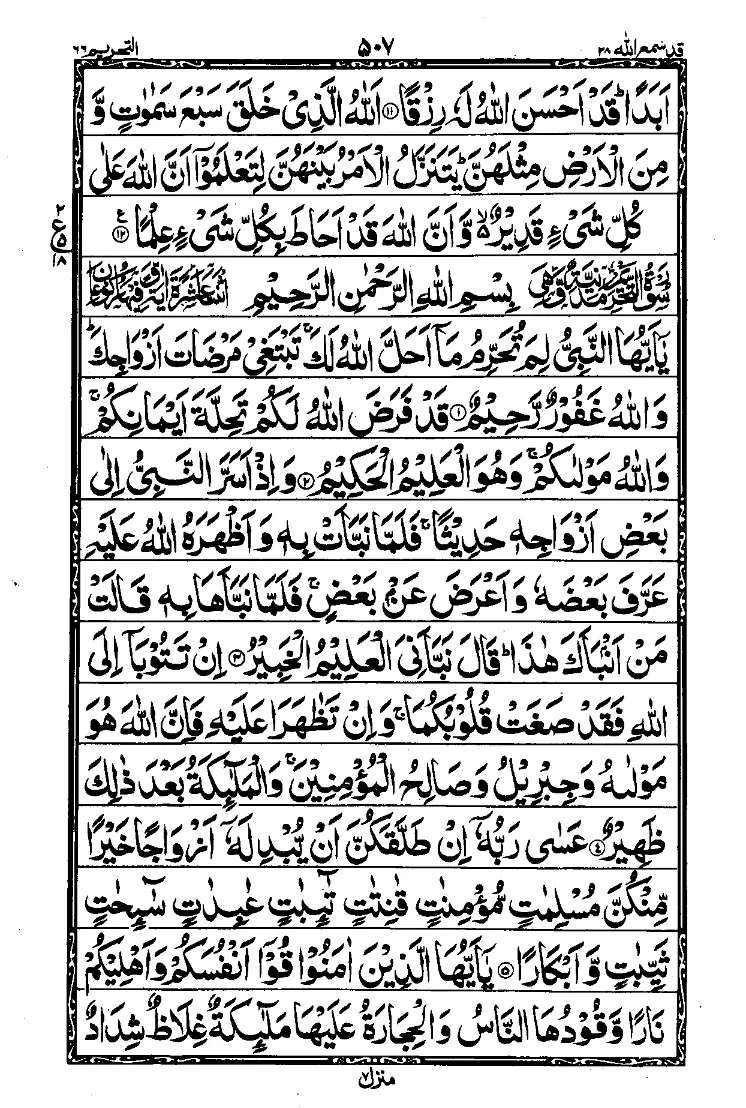 قد سمع الله ٢٨ ٥٠٧ التحريم ٦٦
اَبَدًا ؕ قَدْ اَحْسَنَ اللّٰهُ لَهٗ رِزْقًا ﴿۱۱﴾ اَللّٰهُ الَّذِىْ خَلَقَ سَبْعَ سَمٰوٰتٍ وَّ
مِنَ الْاَرْضِ مِثْلَهُنَّ ؕ يَتَنَزَّلُ الْاَمْرُ بَيْنَهُنَّ لِتَعْلَمُوْۤا اَنَّ اللّٰهَ عَلٰى
كُلِّ شَىْءٍ قَدِيْرٌ ۙ۬ وَّ اَنَّ اللّٰهَ قَدْ اَحَاطَ بِكُلِّ شَىْءٍ عِلْمًا ﴿۱۲﴾
٢ ع ٥ ١٨
سُوْرَةُ التَّحْرِيْمِ مَدَنِيَّةٌ وَّهِىَ بِسْمِ اللّٰهِ الرَّحْمٰنِ الرَّحِيْمِ اثْنَتَا عَشْرَةَ اٰيَةً وَّفِيْهَا رُكُوْعَانِ
يٰۤاَيُّهَا النَّبِىُّ لِمَ تُحَرِّمُ مَاۤ اَحَلَّ اللّٰهُ لَكَ ۚ تَبْتَغِىْ مَرْضَاتَ اَزْوَاجِكَ ؕ
وَاللّٰهُ غَفُوْرٌ رَّحِيْمٌ ﴿۱﴾ قَدْ فَرَضَ اللّٰهُ لَكُمْ تَحِلَّةَ اَيْمَانِكُمْ ۚ
وَاللّٰهُ مَوْلٰٮكُمْ ۚ وَهُوَ الْعَلِيْمُ الْحَكِيْمُ ﴿۲﴾ وَاِذْ اَسَرَّ النَّبِىُّ اِلٰى
بَعْضِ اَزْوَاجِهٖ حَدِيْثًا ۚ فَلَمَّا نَبَّاَتْ بِهٖ وَاَظْهَرَهُ اللّٰهُ عَلَيْهِ
عَرَّفَ بَعْضَهٗ وَاَعْرَضَ عَنْۢ بَعْضٍ ۚ فَلَمَّا نَبَّاَهَا بِهٖ قَالَتْ
مَنْ اَنْۢبَاَكَ هٰذَا ؕ قَالَ نَبَّاَنِىَ الْعَلِيْمُ الْخَبِيْرُ ﴿۳﴾ اِنْ تَتُوْبَاۤ اِلَى
اللّٰهِ فَقَدْ صَغَتْ قُلُوْبُكُمَا ۚ وَاِنْ تَظٰهَرَا عَلَيْهِ فَاِنَّ اللّٰهَ هُوَ
مَوْلٰٮهُ وَجِبْرِيْلُ وَصَالِحُ الْمُؤْمِنِيْنَ ۚ وَالْمَلٰٓئِكَةُ بَعْدَ ذٰلِكَ
ظَهِيْرٌ ﴿۴﴾ عَسٰى رَبُّهٗۤ اِنْ طَلَّقَكُنَّ اَنْ يُّبْدِلَهٗۤ اَزْوَاجًا خَيْرًا
مِّنْكُنَّ مُسْلِمٰتٍ مُّؤْمِنٰتٍ قٰنِتٰتٍ تٰٓئِبٰتٍ عٰبِدٰتٍ سٰٓئِحٰتٍ
ثَيِّبٰتٍ وَّاَبْكَارًا ﴿۵﴾ يٰۤاَيُّهَا الَّذِيْنَ اٰمَنُوْا قُوْۤا اَنْفُسَكُمْ وَاَهْلِيْكُمْ
نَارًا وَّقُوْدُهَا النَّاسُ وَالْحِجَارَةُ عَلَيْهَا مَلٰٓئِكَةٌ غِلَاظٌ شِدَادٌ
منزل ٧